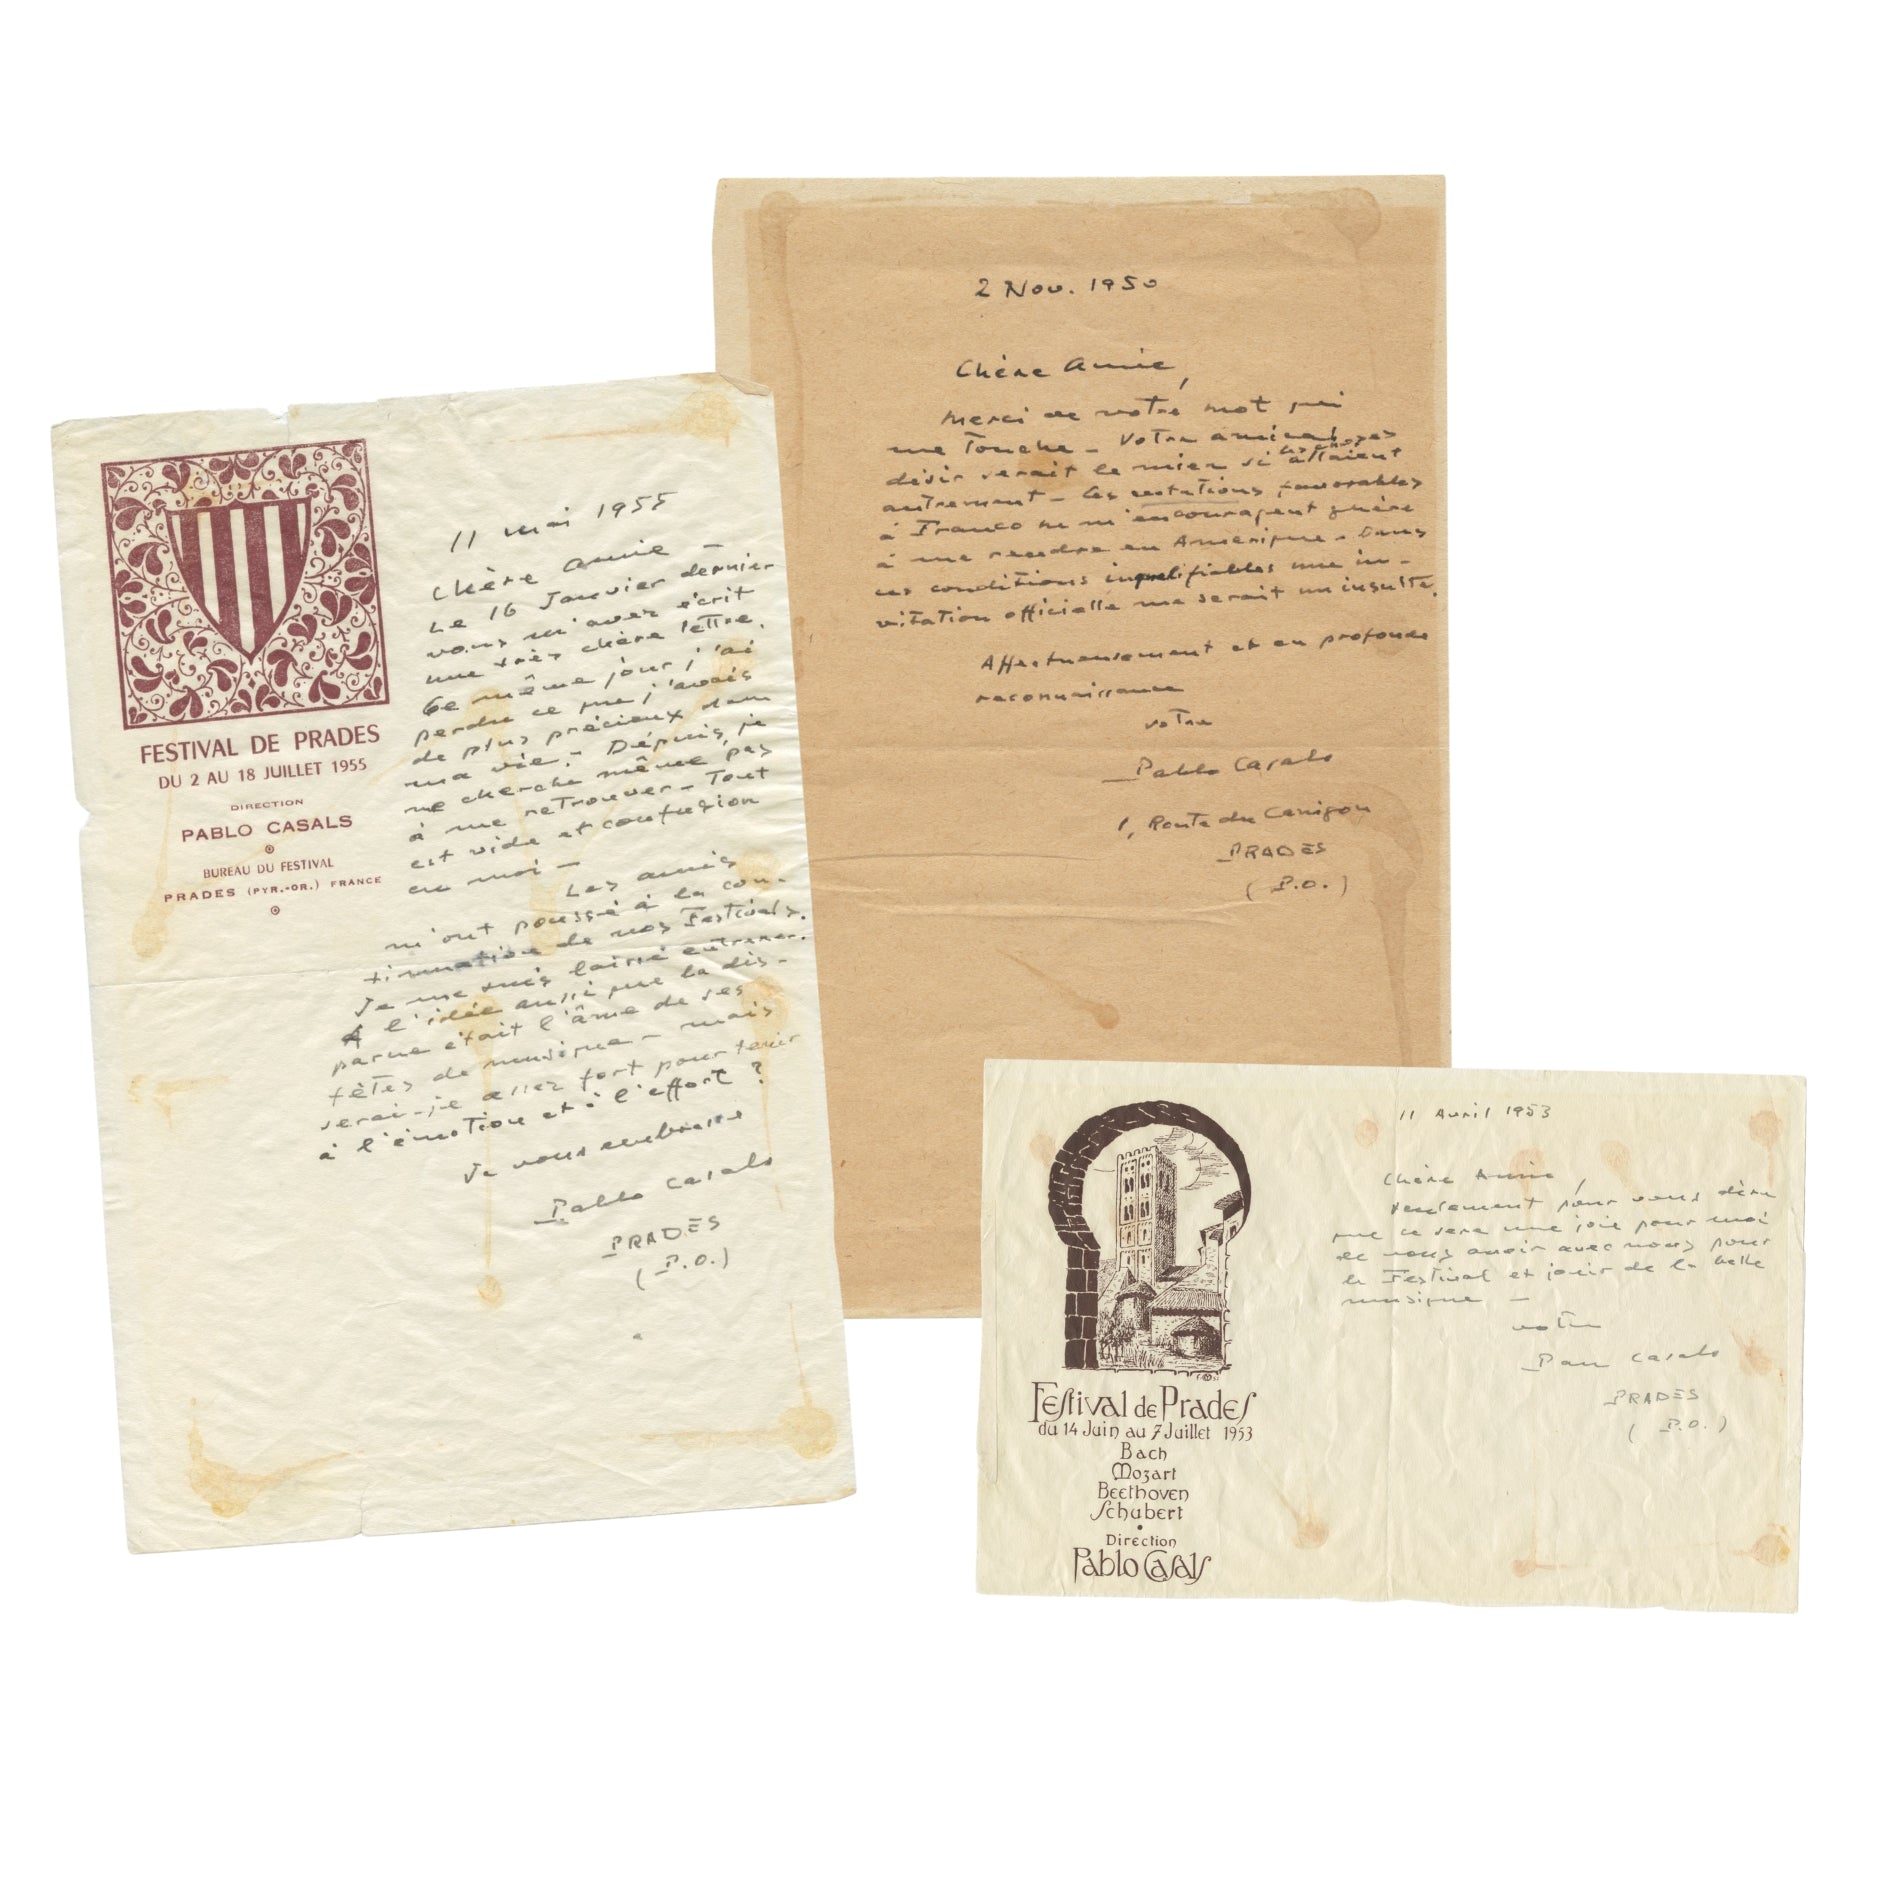 FESTIVAL DE PRADES
DU 2 AU 18 JUILLET 1955
DIRECTION
PABLO CASALS
BUREAU DU FESTIVAL
PRADES (PYR.-OR.) FRANCE
11 mai 1955
Chère amie –
Le 16 Janvier dernier
vous m'avez écrit
une très chère lettre.
Ce même jour j'ai
perdu ce que j'avais
de plus précieux dans
ma vie. – Dépuis, je
ne cherche même pas
à me retrouver – Tout
est vide et confusion
en moi –
Les amis
m'ont poussé à la con-
tinuation de nos Festivals.
Je me suis laissé entrener.
A l'idée aussi que la dis-
parue était l'âme de ses
fêtes de musique – mais
serai-je assez fort pour tenir
à l'émotion et à l'effort ?
Je vous embrasse
Pablo Casals
PRADES
(P.O.)
2 Nov. 1950
Chère Amie,
Merci de votre mot qui
me touche – Votre amical
désir serait le mien si les choses allaient
autrement – Les votations favorables
à Franco ne m'encouragent guère
à me rendre en Amerique – Dans
ces conditions inqualifiables une in-
vitation officielle me serait un insulte.
Affectueusement et en profonde
reconnaissance
votre
Pablo Casals
1, Route du Canigou
PRADES
(P.O.)
Festival de Prades
du 14 Juin au 7 Juillet 1953
Bach
Mozart
Beethoven
Schubert
Direction
Pablo Casals
11 Avril 1953
Chère Amie,
Seulement pour vous dire
que ce sera une joie pour moi
de vous avoir avec nous pour
le Festival et jouir de la belle
musique –
votre
Pau Casals
PRADES
(P.O.)